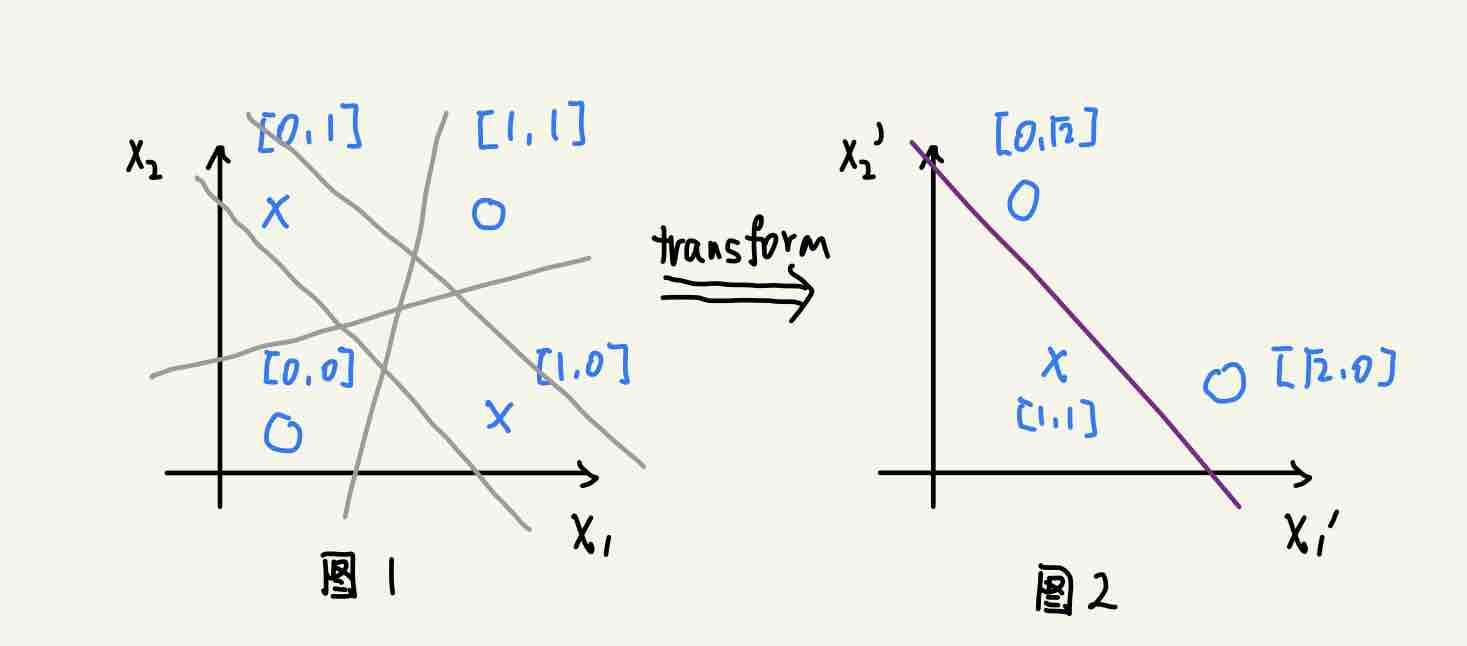 [0,1]
[1,1]
X₂
X
O
[0,0]
[1,0]
O
X
X₁
图1
transform
[0,√2]
X₂'
O
X
[1,1]
O
[√2,0]
X₁'
图2